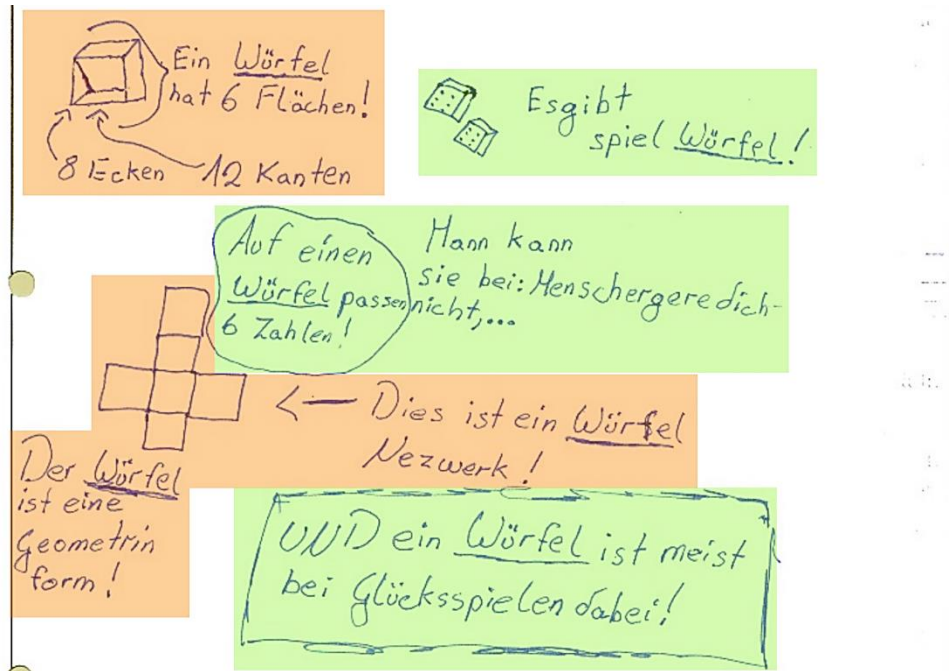 Ein Würfel
hat 6 Flächen!
8 Ecken 12 Kanten
Esgibt
spiel Würfel!
Auf einen
Würfel passen
6 Zahlen!
Mann kann
sie bei: Menschergeredich-
nicht,...
Dies ist ein Würfel
Nezwerk!
Der Würfel
ist eine
Geometrin
form!
UND ein Würfel ist meist
bei Glücksspielen dabei!